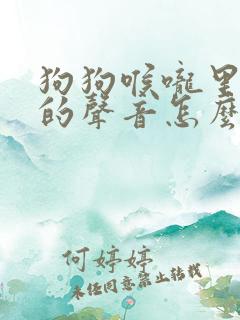 狗狗喉嚨里
的聲音怎麼
何婷婷
未经同意禁止转载